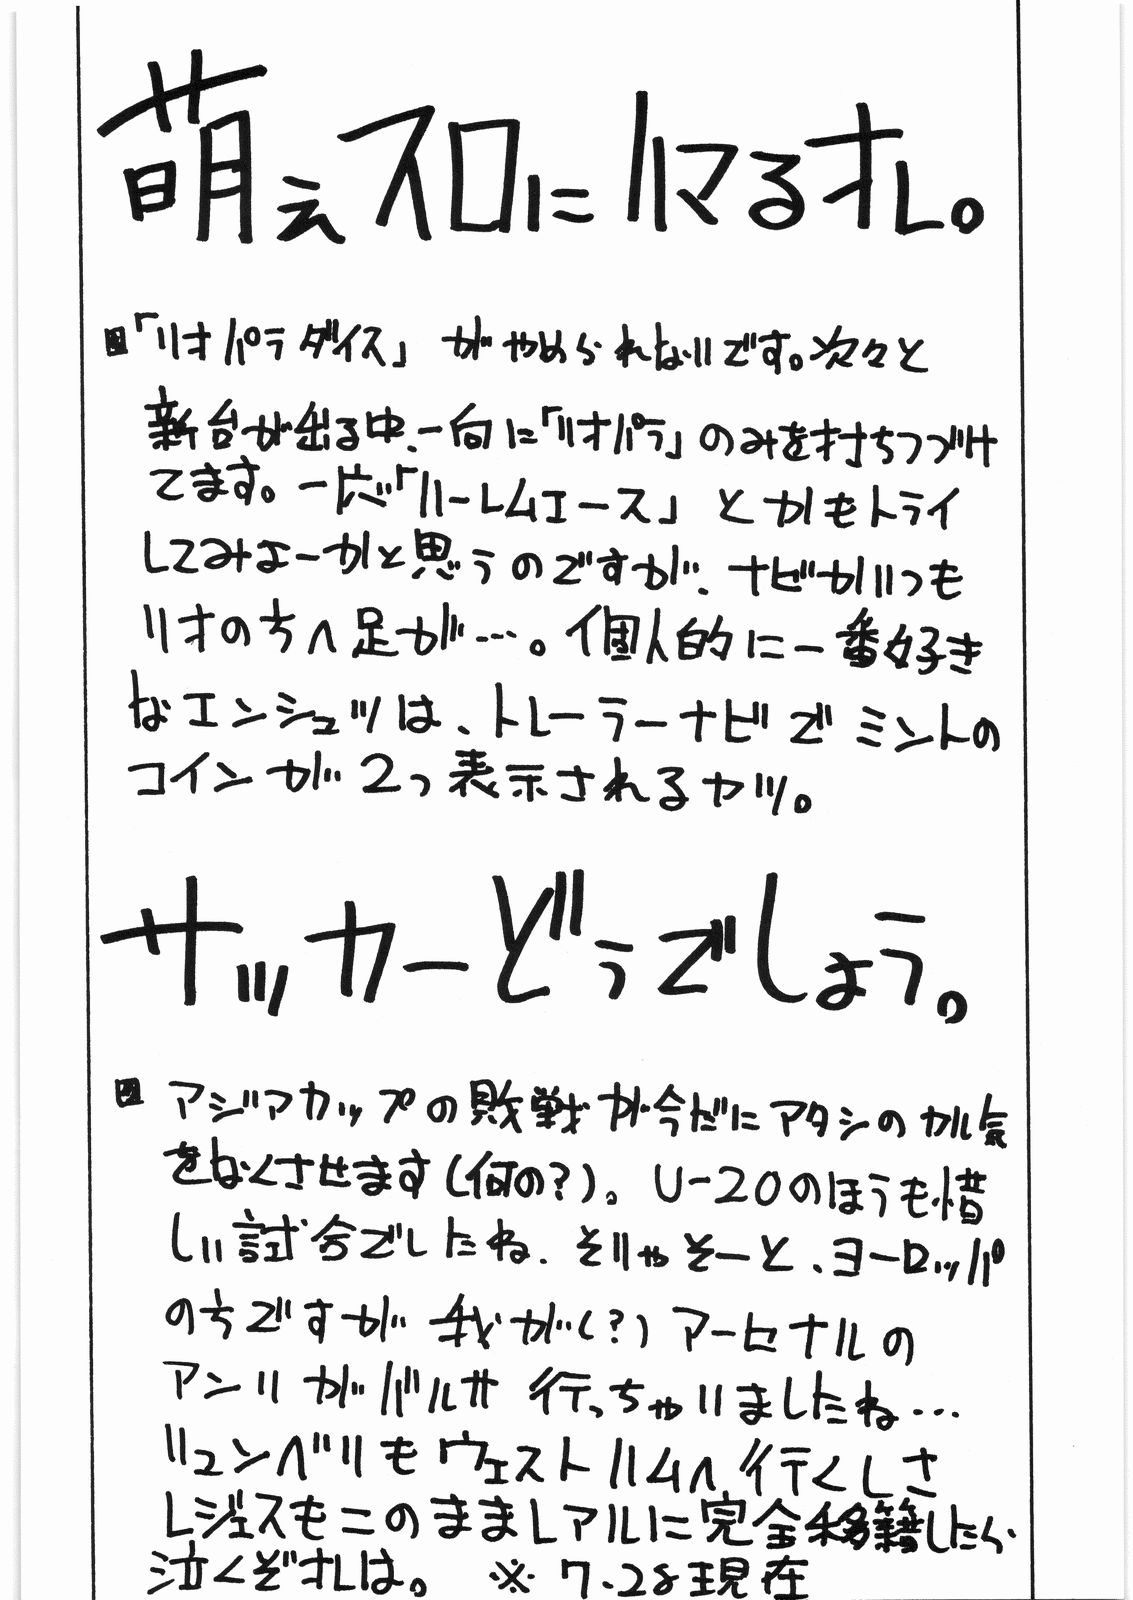 萌えスロにハマるオレ。
「リオパラダイス」がやめられないです。次々と
新台が出る中、一向に「リオパラ」のみを打ちつづけ
てます。一応「ハーレムエース」とかもトライ
してみよーかと思うのですが、ナビがいつも
リオの方へ足が…。個人的に一番好き
なエンシュツは、トレーラーナビでミントの
コインが2つ表示されるヤツ。
サッカーどうでしょう。
アジアカップの敗戦が今だにアタシのヤル気
をなくさせます(何の?)。U-20のほうも惜
しい試合でしたね、そりゃそーと、ヨーロッパ
の方ですが我が(?)アーセナルの
アンリがバルサ行っちゃいましたね…
リュンベリもウェストハムへ行くしさ
レジェスもこのままレアルに完全移籍したら
泣くぞオレは。 ※7.28現在